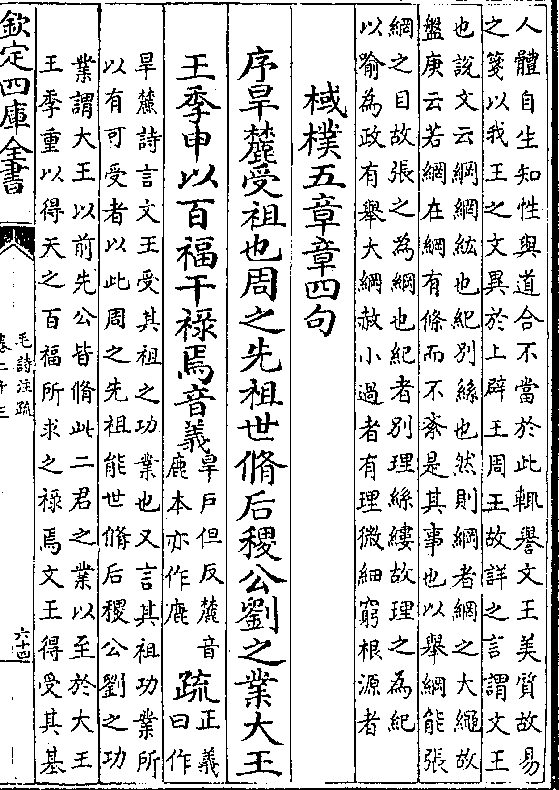 人體自生知性與道合不當於此輒譽文王美質故易
之箋以我王之文異於上辟王周王故詳之言謂文王
也說文云綱網紘也紀別絲也然則綱者網之大繩故
盤庚云若網在綱有條而不紊是其事也以舉綱能張
網之目故張之為綱也紀者別理絲縷故理之為紀
以喻為政有舉大綱赦小過者有理微細窮根源者
棫樸五章章四句
序旱麓受祖也周之先祖世脩后稷公劉之業大王
王季申以百福干祿焉音義
旱戶但反麓音
鹿本亦作鹿
疏
正義
曰作
旱麓詩言文王受其祖之功業也又言其祖功業所
以有可受者以此周之先祖能世脩后稷公劉之功
業謂大王以前先公皆脩此二君之業以至於大王
王季重以得天之百福所求之祿焉文王得受其基
欽定四庫全書
毛詩注疏
卷二十三
六十四